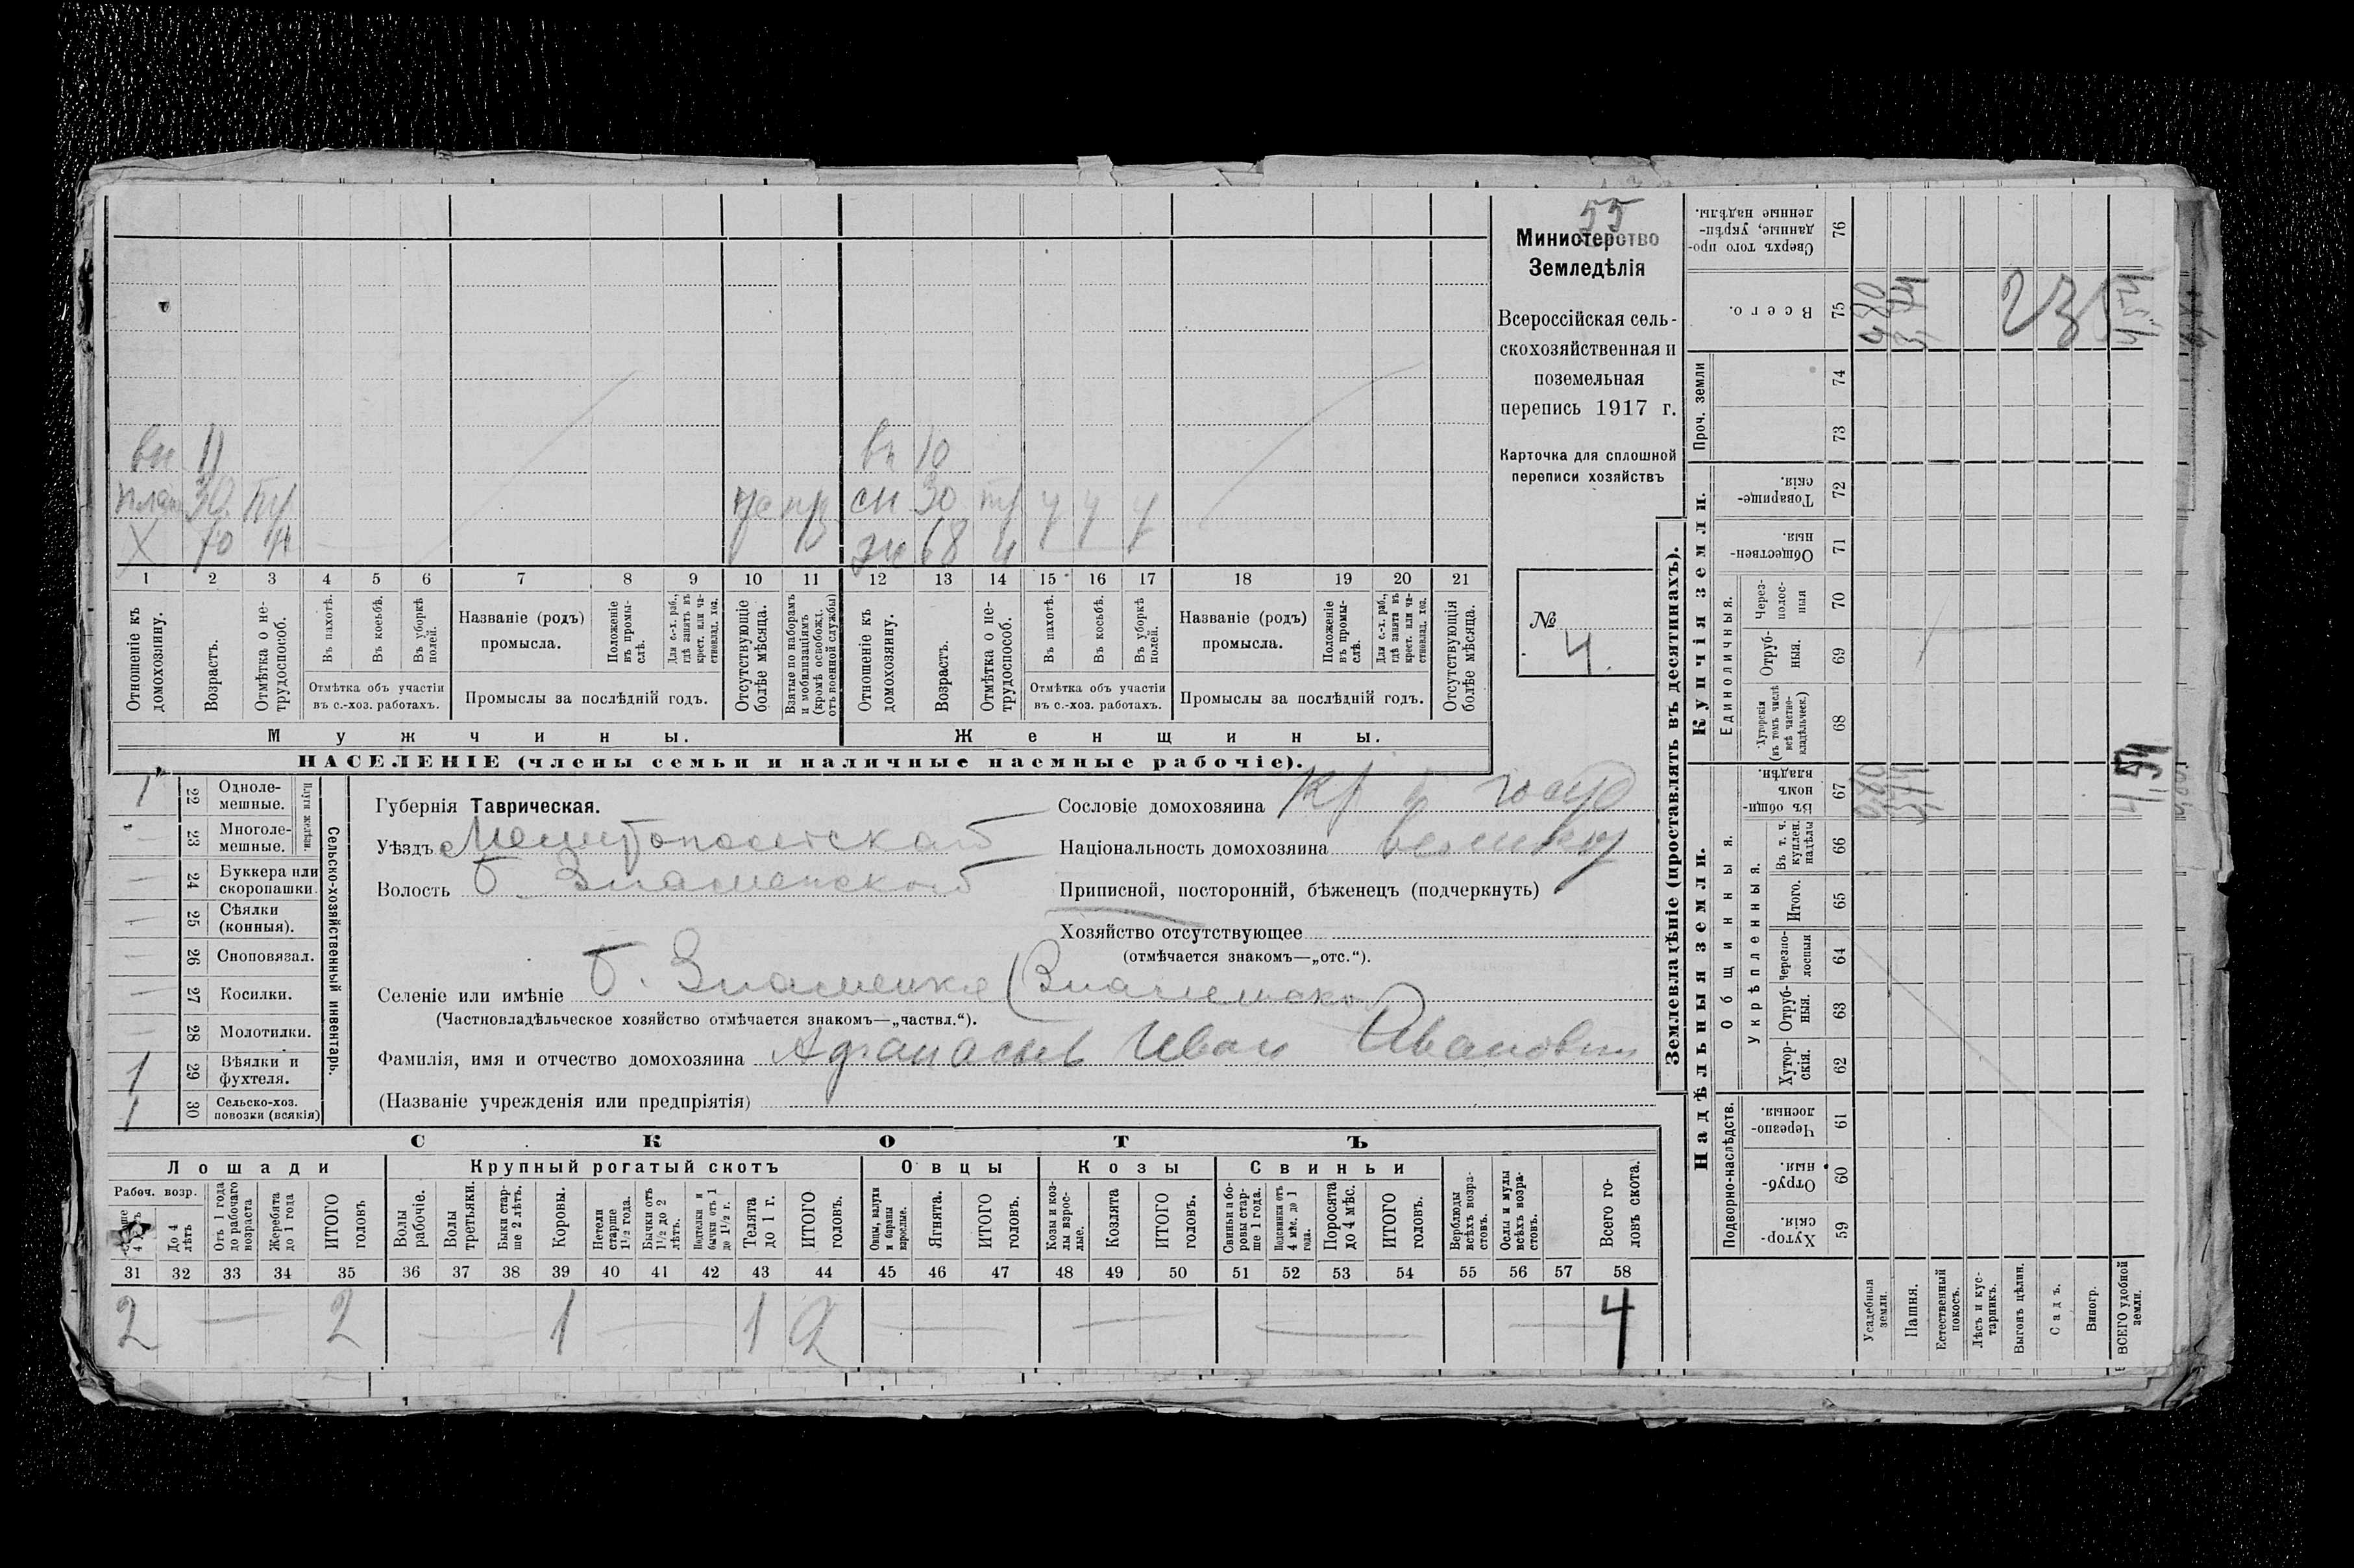 55
Министерство
Земледѣлія
Всероссійская сель-
скохозяйственная и
поземельная
перепись 1917 г.
Карточка для сплошной
переписи хозяйствъ
№
4.
вн 11 вн 10
30 сн 30 тр у у у
X 70 н жн 68 н
1 2 3 4 5 6 7 8 9 10 11 12 13 14 15 16 17 18 19 20 21
Отношеніе къ домохозяину.
Возрастъ.
Отмѣтка о не-трудоспособ.
Въ пахотѣ.
Въ косьбѣ.
Въ уборкѣ полей.
Отмѣтка объ участіи
въ с.-хоз. работахъ.
Названіе (родъ)
промысла.
Положеніе въ промы-слѣ.
Для с.-х. раб., гдѣ занятъ въ крест. или ча-стновлад. хоз.
Промыслы за послѣдній годъ.
Отсутствующіе болѣе мѣсяца.
Взятые по наборамъ и мобилизаціямъ (кромѣ освобожд. отъ военной службы)
Отношеніе къ домохозяину.
Возрастъ.
Отмѣтка о не-трудоспособ.
Въ пахотѣ.
Въ косьбѣ.
Въ уборкѣ полей.
Отмѣтка объ участіи
въ с.-хоз. работахъ.
Названіе (родъ)
промысла.
Положеніе въ промы-слѣ.
Для с.-х. раб., гдѣ занятъ въ крест. или ча-стновлад. хоз.
Промыслы за послѣдній годъ.
Отсутствующія болѣе мѣсяца.
Мужчины. Женщины.
НАСЕЛЕНІЕ (члены семьи и наличные наемные рабочіе).
Сельско-хозяйственный инвентарь.
Плуги желѣзн.
1 22 Одноле-мешные.
— 23 Многоле-мешные.
— 24 Буккера или скоропашки.
— 25 Сѣялки (конныя).
— 26 Сноповязал.
— 27 Косилки.
— 28 Молотилки.
1 29 Вѣялки и фухтеля.
1 30 Сельско-хоз. повозки (всякія)
Губернія Таврическая.
Уѣздъ Мелитопольской
Волость Б Знаменской
Селеніе или имѣніе Б. Знаменка (Знаменско
(Частновладѣльческое хозяйство отмѣчается знакомъ—„частвл.“).
Фамилія, имя и отчество домохозяина Афанасьев Иван Иванович
(Названіе учрежденія или предпріятія)
Сословіе домохозяина кр б
Національность домохозяина
Приписной, посторонній, бѣженецъ (подчеркнуть)
Хозяйство отсутствующее
(отмѣчается знакомъ—„отс.“).
СКОТЪ
Лошади Крупный рогатый скотъ Овцы Козы Свиньи
Рабоч. возр.
До 4 лѣтъ
Отъ 1 года до рабочаго возраста
Жеребята до 1 года
ИТОГО головъ
Волы рабочіе.
Волы третьяки.
Быки стар-ше 2 лѣтъ.
Коровы.
Нетели старше 1½ года.
Бычки отъ 1½ до 2 лѣтъ.
Подтелки и бычки отъ 1 до 1½ г.
Телята до 1 г.
ИТОГО головъ.
Овцы, валухи и бараны взрослые.
Ягнята.
ИТОГО головъ.
Козы и коз-лы взрос-лые.
Козлята
ИТОГО головъ.
Свиньи и бо-ровы стар-ше 1 года.
Подсвинки отъ 4 мѣс. до 1 года.
Поросята до 4 мѣс.
ИТОГО головъ.
Верблюды всѣхъ возра-стовъ.
Ослы и мулы всѣхъ возра-стовъ.
Всего го-ловъ скота.
31 32 33 34 35 36 37 38 39 40 41 42 43 44 45 46 47 48 49 50 51 52 53 54 55 56 57 58
2 — 2 — 1 — 1 2 — — — — 4
Землевладѣніе (проставлять въ десятинахъ).
Купчія земли.
Надѣльныя земли.
Сверхъ того про-данные, укрѣп-ленные надѣлы. 76
Всего. 75
Проч. земли 74 73
Товарище-скія. 72
Обществен-ныя. 71
Единоличныя.
Через-полос-ныя 70
Отруб-ныя. 69
Хуторскія (въ томъ числѣ всѣ частно-владѣльческ.) 68
Общинныя.
Въ общин-номъ владѣн. 67
Укрѣпленныя.
Въ т. ч. куплен. надѣлы 66
Итого. 65
Черезпо-лосныя 64
Отруб-ныя. 63
Хутор-скія. 62
Подворно-наслѣдств.
Черезпо-лосныя. 61
Отруб-ныя. 60
Хутор-скія. 59
Усадебныя земли.
Пашня.
Естественный покосъ.
Лѣсъ и кус-тарникъ.
Выгонъ цѣлин.
Садъ.
Виногр.
ВСЕГО удобной земли.
235